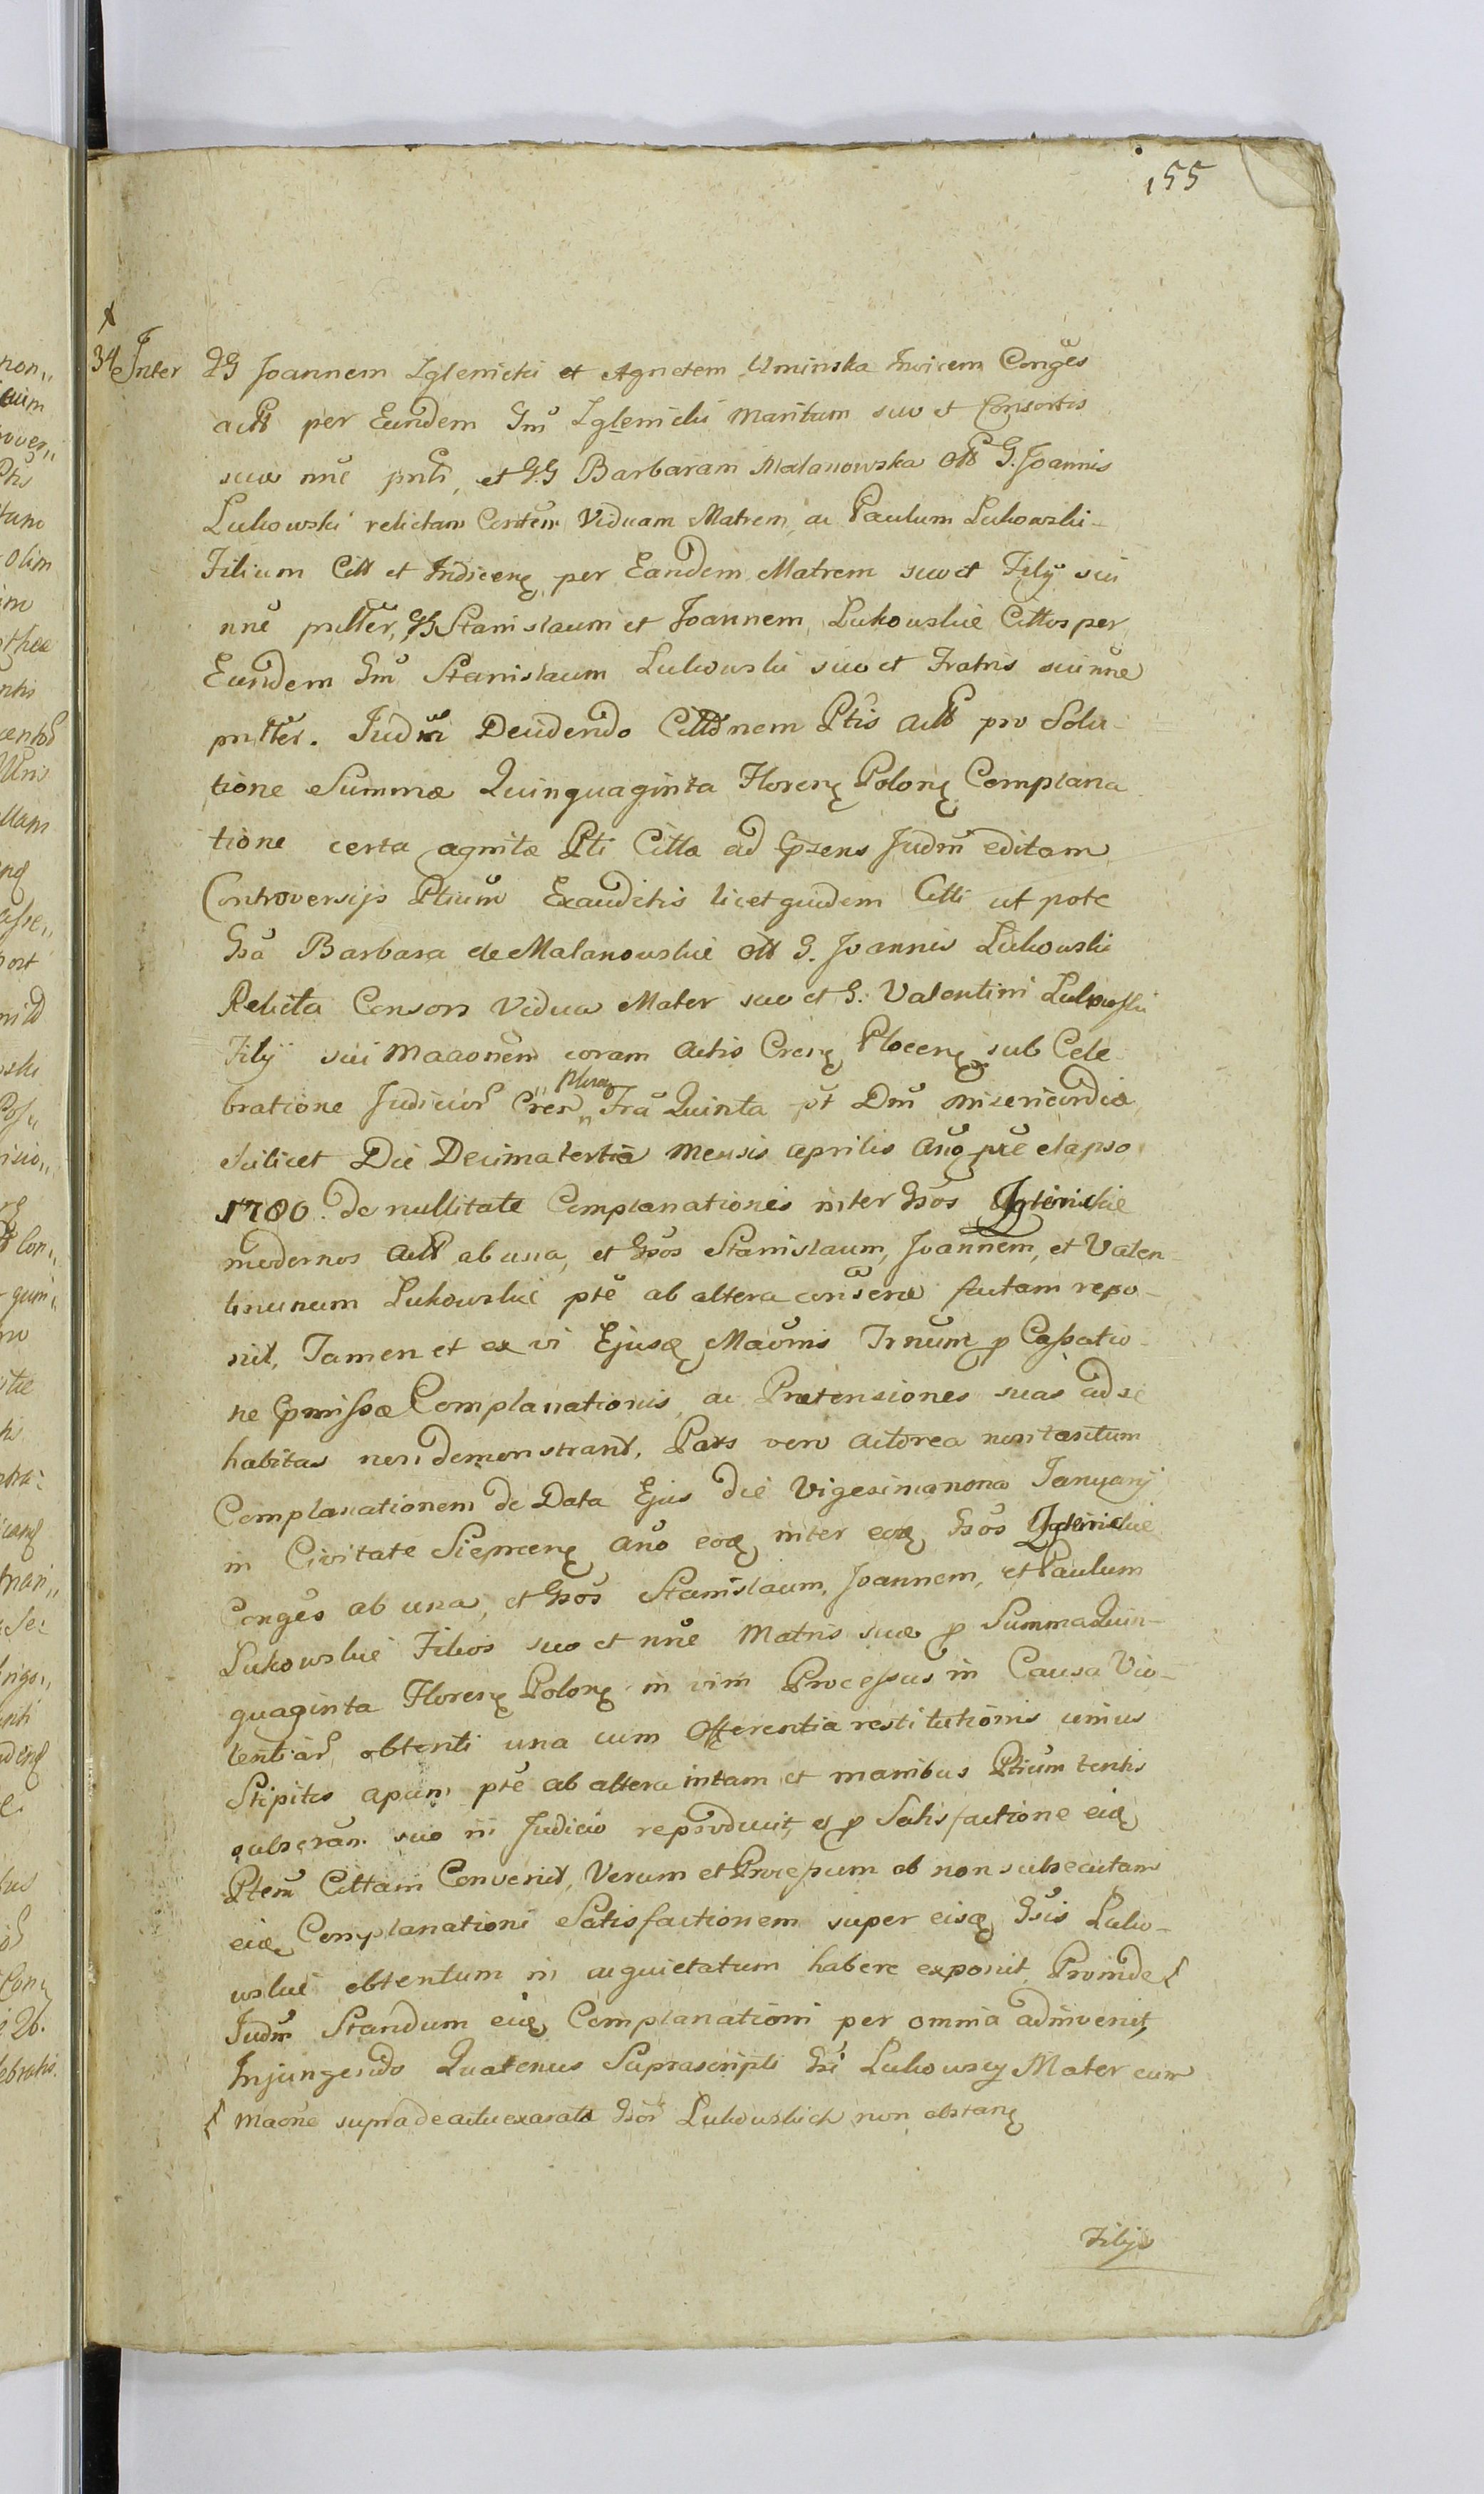 155
34 Inter GG Joannem Iglenicki et Agnetem Uminska Invicem Conges
actt per Eundem Gm Iglenicki Maritum suo et Consortis
suae nne pnti, et GG Barbaram Malanowska ott G. Joannis
Lukowski relictam Contem Viduam Matrem, ac Paulum Lukowski
Filium Citt et Indicen per Eandem Matrem suo et Filij sui
nne pntter, GG Stanislaum et Joannem Lukowskie Cittos per
Eundem Gm Stanislaum Lukowski suo et Fratris sui nne
pntter. Judm Decidendo Cittonem Ptis actt pro Solu-
tione Summae Quinquaginta Floren Polon Complana
tione certa agnitae Pti Citta ad Ppsens Judm editam
Controversijs Ptium Exauditis licet quidem Citti ut pote
Gsa Barbara de Malanowskie ott G. Joannis Lukowski
Relicta Consors Vidua Mater suo et G. Valentini Lukowski
Filij sui Maaonem coram Actis Cren Plocen sub Cele
bratione Judicior Cren Plocen Fra Quinta pt Dm Misericordia
scilicet Die Decimatertia Mensis Aprilis Ano pre elapso
1780. de nullitate Complanationis inter Gsos Iglenickie
modernos actt ab una, et Gsos Stanislaum, Joannem, et Valen-
tinunum Lukowskie pte ab altera factam repo-
nit, Tamen et ex vi Ejusd Maonis Trnum p Cassatio-
ne Ppmissae Complanationis, ac Praetensiones suas ad se
habitas non demonstrant, Pars vero Actorea non tantum
Complanationem de Data Ejus die Vigesimanona Januarij
in Civitate Siepreen Ano eod inter eosd Gsos Iglenickie
Conges ab una, et Gsos Stanislaum, Joannem, et Paulum
Lukowskie Filios suo et nne Matris suae p Summa Quin-
quaginta Floren Polon in vim Processus in Causa Vio-
lentiar obtenti una cum Offerentia restitutionis unius
Stipitis apum pte ab altera initam et manibus Ptium tentis
subscram suo in Judicio reproducit, et p Satisfactione eid
Ptem Cittam Convenit, Verum et Processum ob non subsecutam
eid Complanationi Satisfactionem super eisd Gsis Luko-
wskie obtentum in acquietatum habere exponit, Proinde
Judm Standum eid Complanationi per omnia adinvenit,
Injungendo Quatenus Suprascripti Gsi Lukowscy Mater cum
Maone supra de actu exarata Gsor Lukowskich non obstan
Filijs